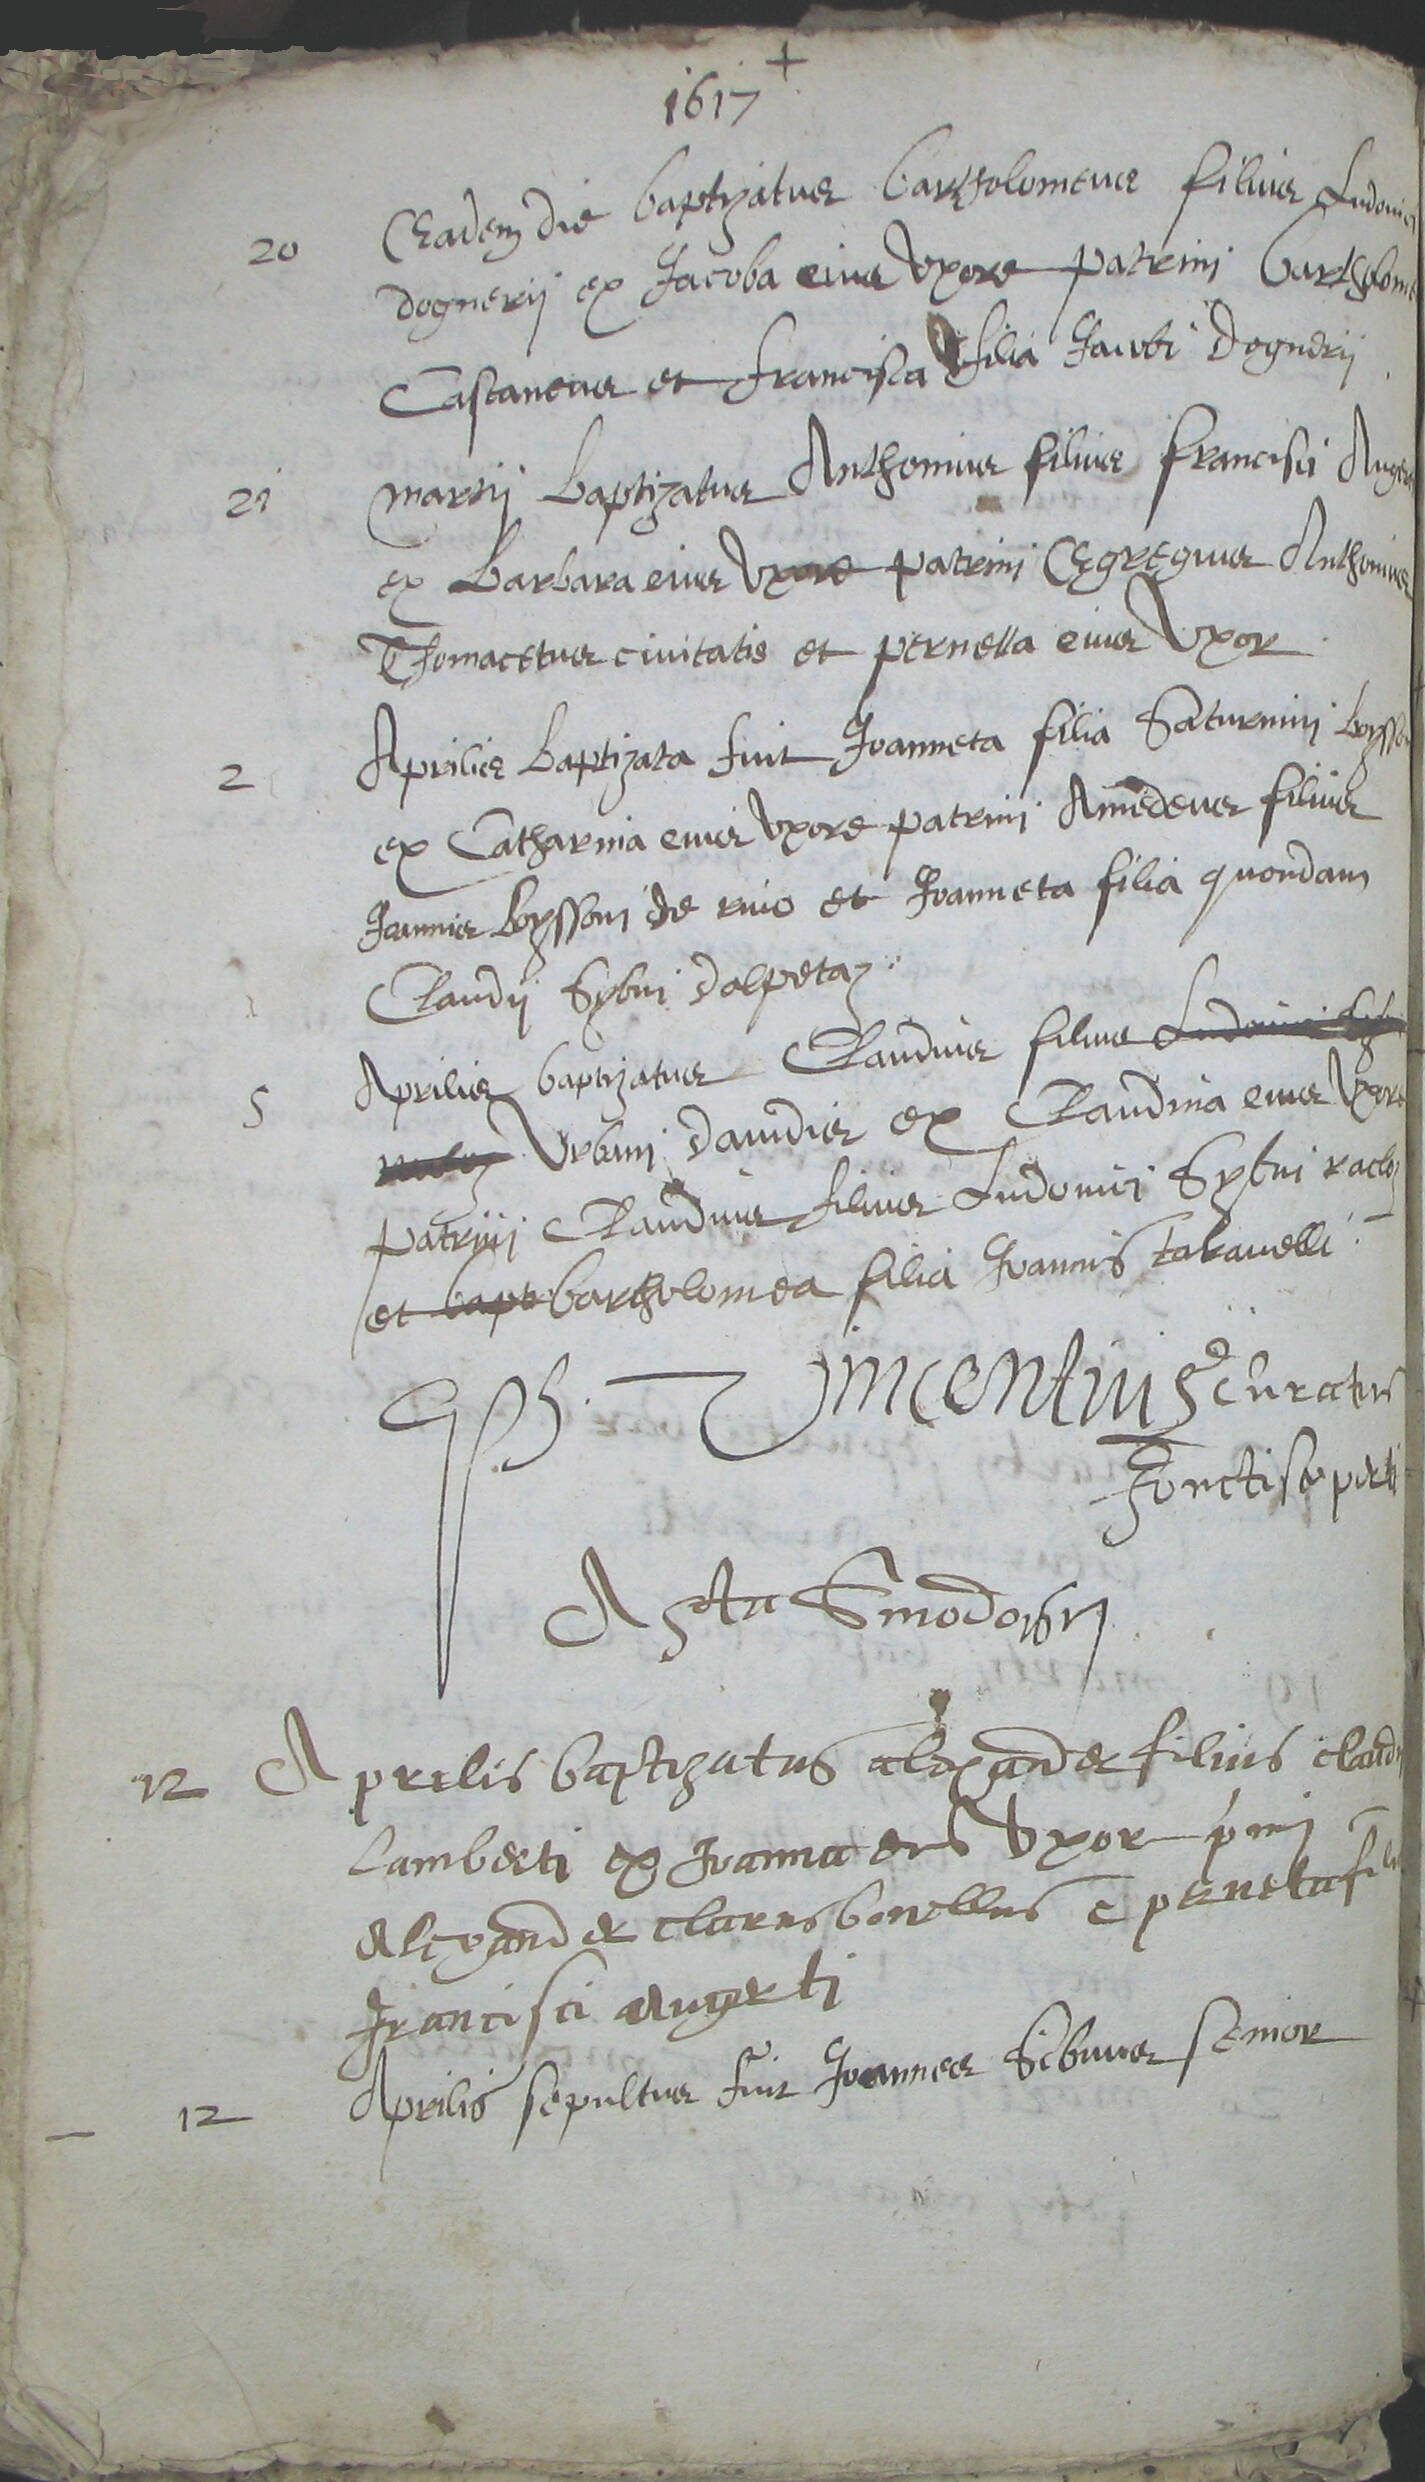 +
1617
20 Eadem die baptizatus bartholomeus filius Ludovici
dognerii ex Jacoba eius Uxore patrini bartholome
Castaneus et francisca filia Jacobi dognerii
21 martii baptizatus Anthonius filius francisci Auger
ex barbara eius Uxore patrini Egregius Anthonius
Thomacetus civitatis et pernella eius Uxor
2 Aprilis baptizata fuit Joanneta filia Saturnini boysson
ex Catharina eius Uxore patrini Amedeus filius
Joannis boyssoni de rivo et Joanneta filia quondam
Claudii Sybui dalpetaz
5 Aprilis baptizatus Claudius filius Ludovici Syb
Urbani davidis ex Claudina eius Uxore
patrini Claudius filius Ludovici Sybui racloz
et bapt bartholomea filia Joannis takavelli
Vincentius Curatus
fonctiscoperti
Acta Sinodo
12 Aprelis baptizatus alexander filius claudi
Lamberti ex Joanna eius Uxor p̄ini
alexander clarus borellus e perneta fili
francisci augerti
12 Aprilis sepultus fuit Joannes Sibuus senior